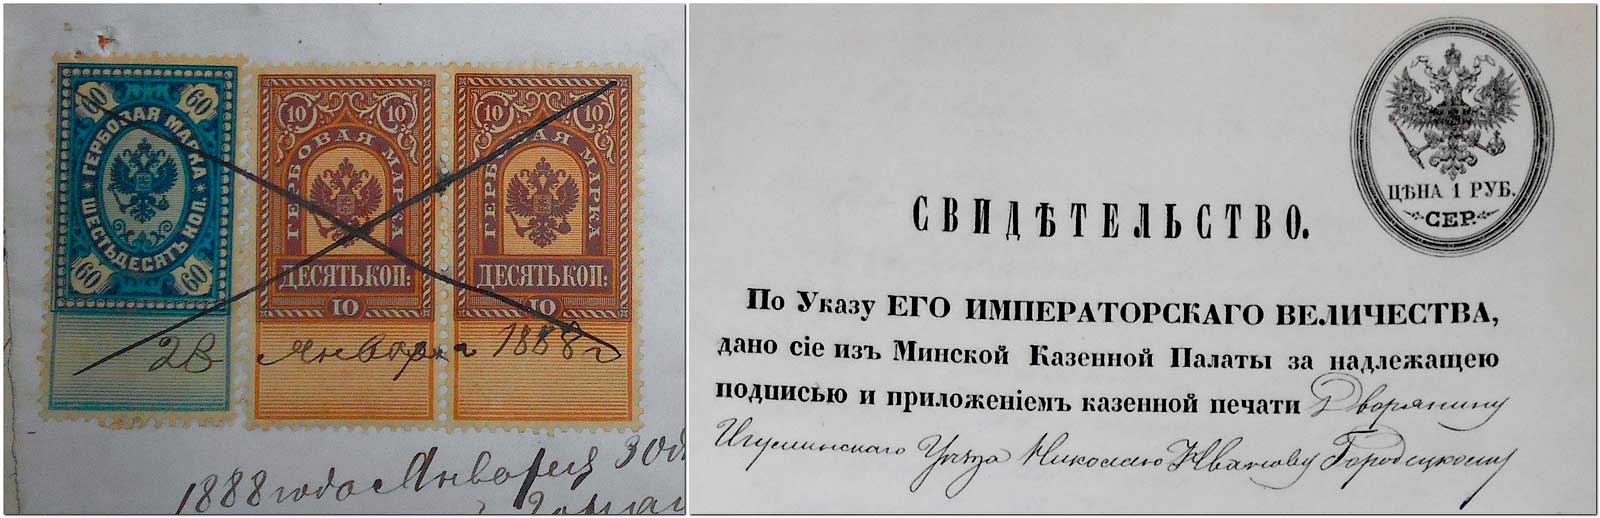 60 60
ГЕРБОВАЯ МАРКА
ШЕСТЬДЕСЯТЪ КОП.
60 60
10 10
ГЕРБОВАЯ МАРКА
ДЕСЯТЬ КОП:
10
10 10
ГЕРБОВАЯ МАРКА
ДЕСЯТЬ КОП:
10
28 января 1888 г
1888 года Января 30
ЦѢНА 1 РУБ.
СЕР.
СВИДѢТЕЛЬСТВО.
По Указу ЕГО ИМПЕРАТОРСКАГО ВЕЛИЧЕСТВА,
дано сіе изъ Минской Казенной Палаты за надлежащею
подписью и приложеніемъ казенной печати Дворянину
Игуменскаго Уѣзда Николаю Иванову Городецкому